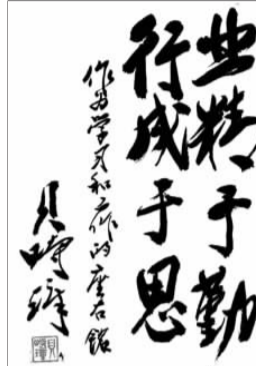 业精于勤
行成于思
作为学习和工作的座右铭
贝时璋